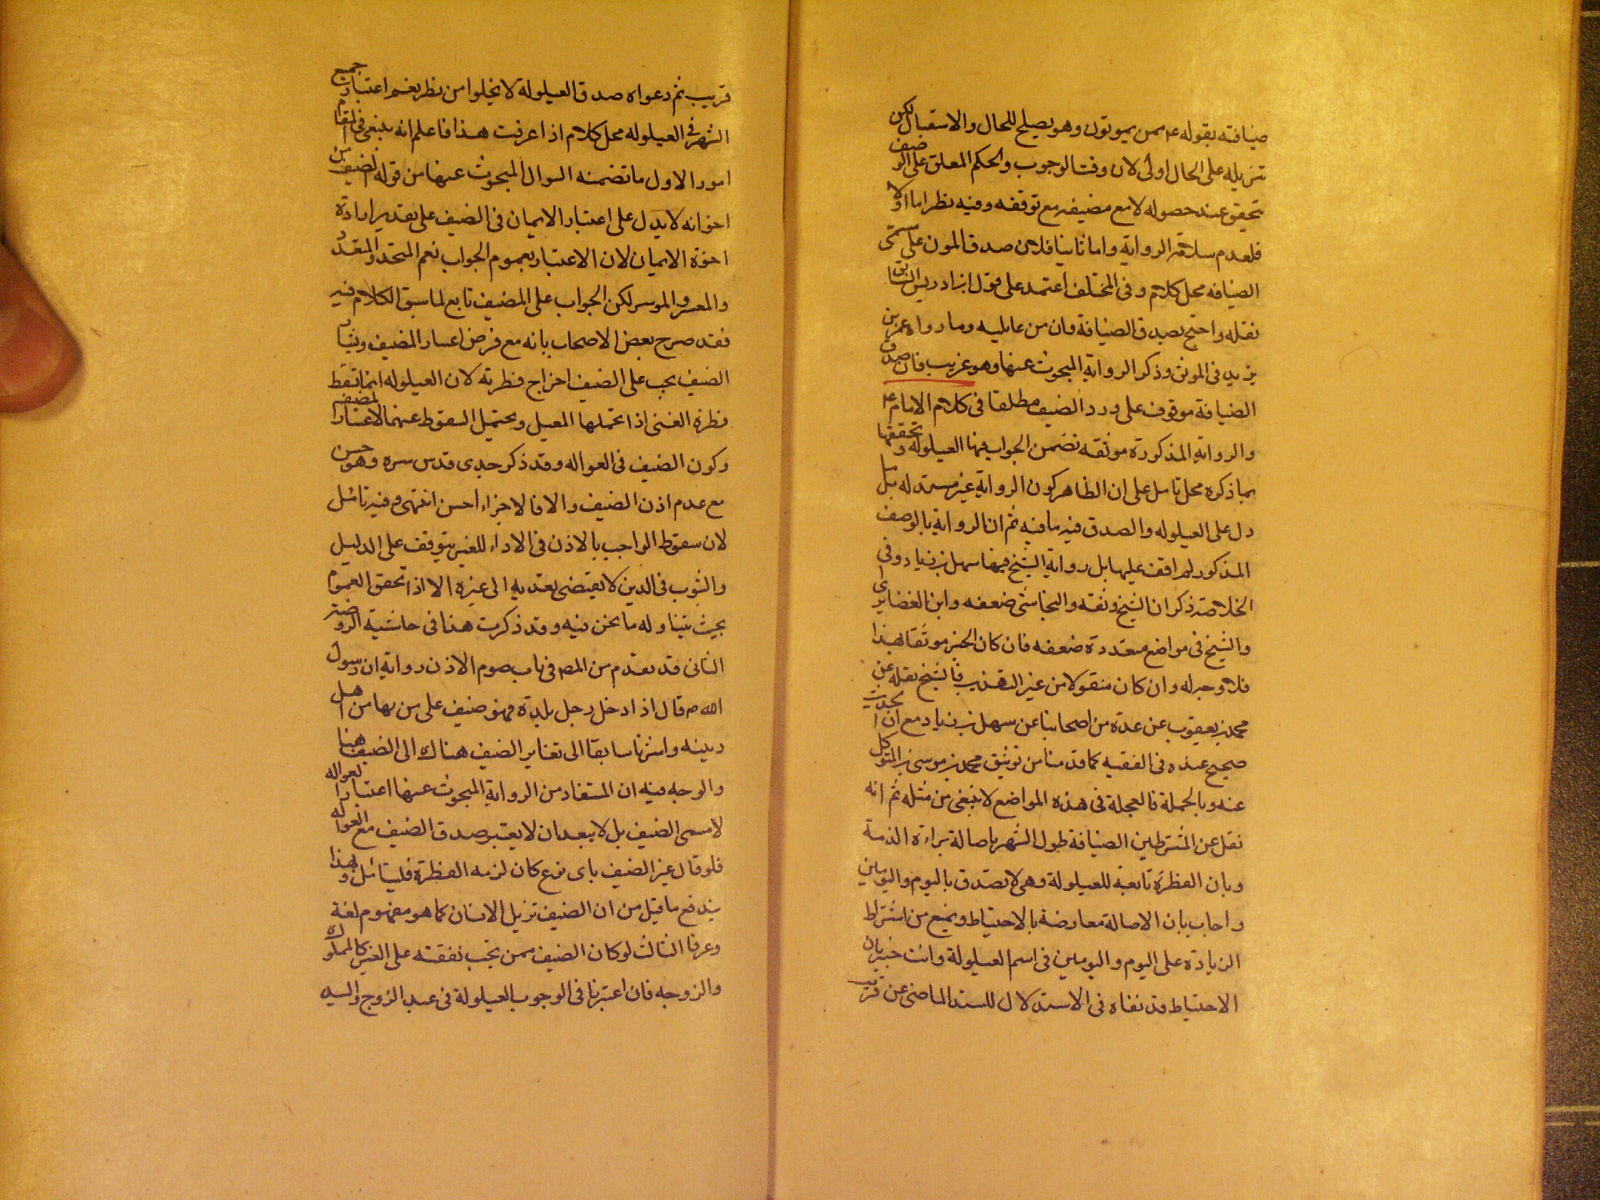 ضيافته بقوله ع ممن يمونون وهو يصلح للحال والاستقبال لكن
تنزيله على الحال اولى لان وقت الوجوب والحكم المعلق على الوصف
تحقق عند حصوله لا مع مضيفه مع توقفه وفيه نظر اما اولا
فلعدم سلامة الرواية واما ثانيا فلان صدق المون على مسمى
الضيافه محل كلام وفي المختلف اعتمد على قول ابن ادريس السابق
نقله واحتج بصدق الضيافة وان من عايليه وما رواه عمر بن
يزيد في الموثق وذكر الرواية المبحوث عنها وهو غريب فان صدق
الضيافة موقوف على ورد الضيف مطلقا في كلام الامام ع
والرواية المذكورة موثقه تضمن الجواب فيها العيلولة وتحققها
بما ذكره محل تامل على ان الظاهر كون الرواية غير مستدله بل
دل على العيلوله والصدق فيه ما فيه ثم ان الرواية بالوصف
المذكور لم اقف عليها بل رواية الشيخ فيها سهل بن زياد وفي
الخلاصة ذكر ان الشيخ وثقه والنجاشي ضعفه وابن الغضايري
والشيخ في مواضع متعددة ضعفه فان كان الخبر موثقا بهذا
فلا وجه له وان كان منقولا من غير التهذيب فالشيخ نقله عن
محمد بن يعقوب عن عدة من اصحابنا عن سهل بن زياد مع ان الحديث
صحيح عنده في الفقيه كما قدمنا من توثيق محمد بن موسى بن المتوكل
عنه وبالجملة فالعجلة في هذه المواضع لا ينبغي من مثله ثم انه
نقل عن المشترطين الضيافة طول الشهر باصالة براءة الذمة
وبان الفطرة تابعة للعيلولة وهي لا تصدق باليوم واليومين
واجاب بان الاصالة معارضة بالاحتياط وبمنع من اشتراط
الزيادة على اليوم واليومين في اسم العيلولة وانت خبير بان
الاحتياط قد نفاه في الاستدلال للسيد الماضي عن قريب
قريب ثم دعواه صدق العيلولة لا يخلوا من نظر نعم اعتبار جميع
الشهر في العيلوله محل كلام اذا عرفت هذا فاعلم انه ينبغي في المقام
امور الاول ما تضمنه السوال المبحوث عنها من قوله الضيف من
اخوانه لا يدل على اعتبار الايمان في الضيف على تقدير ارادة
اخوة الايمان لان الاعتبار بعموم الجواب نعم المتحد والمتعدد
والمعسر والموسر لكن الجواب على المضيف تابع لما سبق الكلام فيه
فقد صرح بعض الاصحاب بانه مع فرض اعسار المضيف ويسار
الضيف يجب على الضيف اخراج فطرته لان العيلوله انما تسقط
فطرة الغني اذا تحملها المعيل ويحتمل السقوط عنهما لاعسار المضيف
وكون الضيف في العواله وقد ذكر جدي قدس سره وهو حسن
مع عدم اذن الضيف والا فالاجزاء احسن انتهى وفيه تامل
لان سقوط الواجب بالاذن في الاداء للغير يتوقف على الدليل
والثبوت في الدين لا يقتضي تعديه الى غيره الا اذا تحقق العموم
بحيث يتناوله ما نحن فيه وقد ذكرت هذا في حاشية الروضة
الثاني قد تقدم من المص في باب صوم الاذن رواية ان رسول
الله ص قال اذا دخل رجل بلدة فهو ضيف على من بها من اهل
دينه واشرنا سابقا الى تغاير الضيف هناك الى الضيف هنا
والوجه فيه ان المستفاد من الرواية المبحوث عنها اعتبار العواله
لا مسمى الضيف بل لا يبعد ان لا يعتبر صدق الضيف مع العواله
فلو قال غير الضيف باى نوع كان لزمه الفطرة فليتامل وبهذا
يندفع ما قيل من ان الضيف نزيل الانسان كما هو مفهوم لغة
وعرفا الثالث لو كان الضيف ممن تجب نفقته على الغير كالمملوك
والزوجه فان اعتبرنا في الوجوب العيلولة في عبد الزوج والسيد